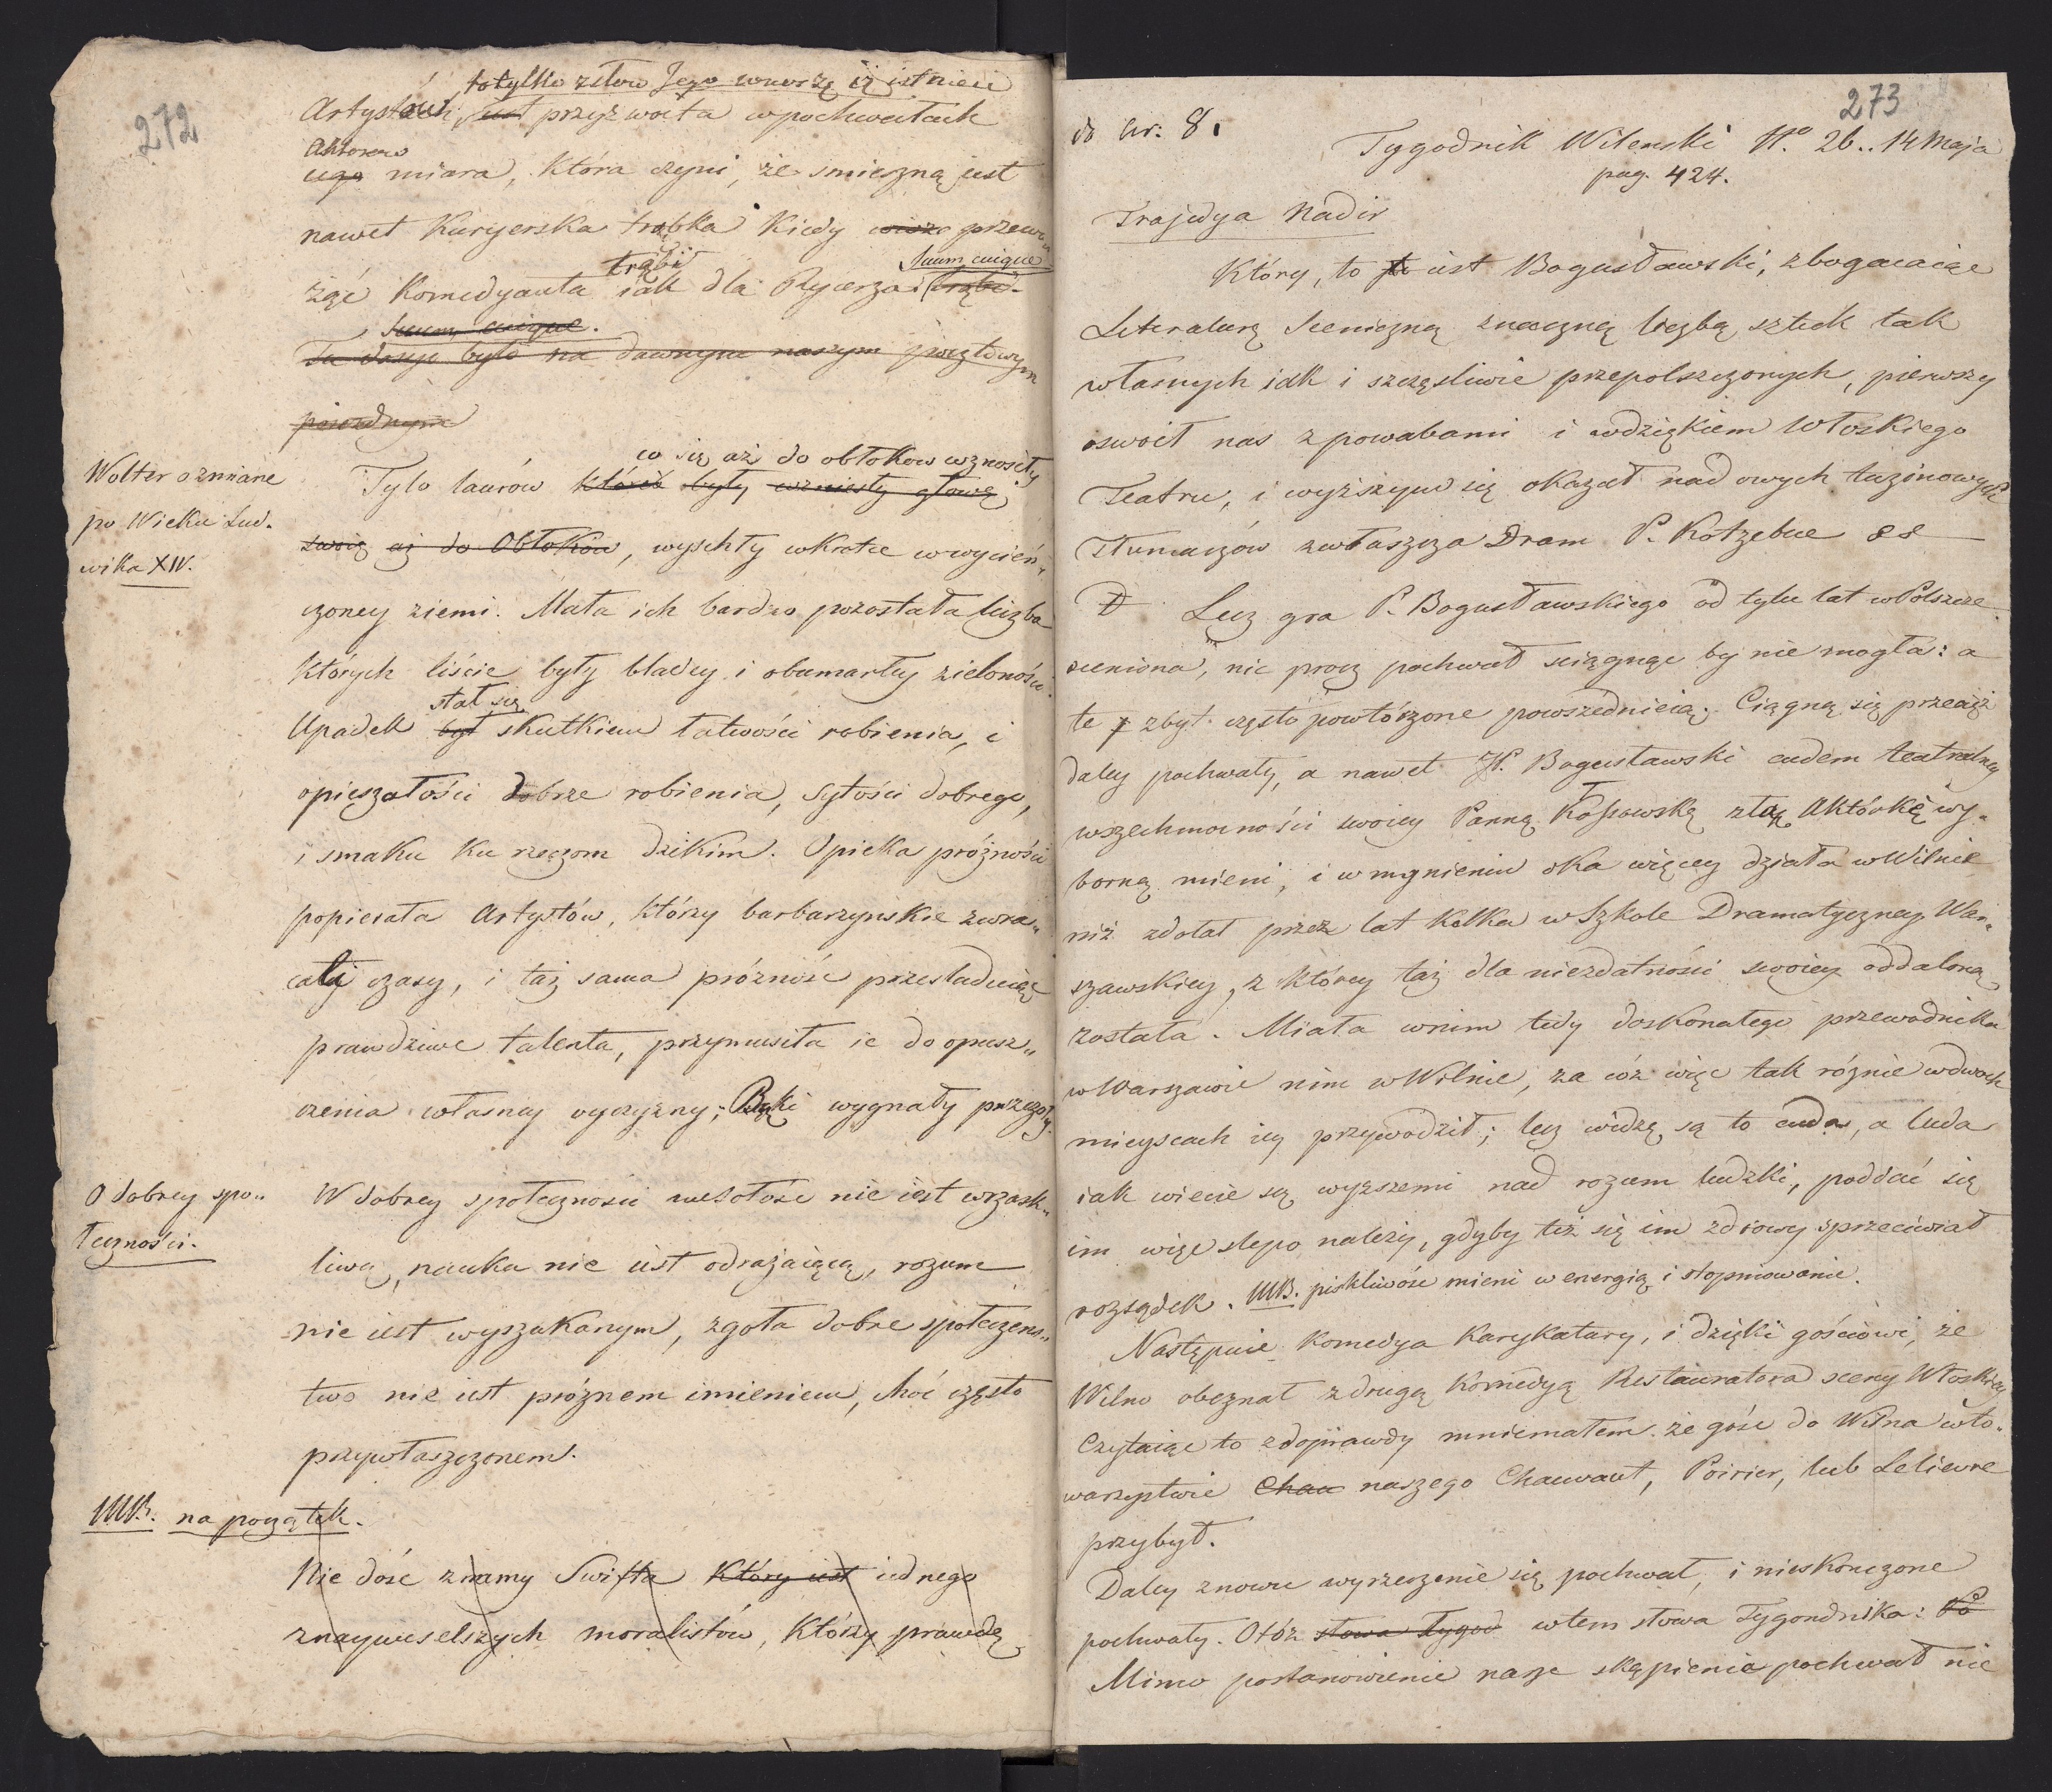 272
to tylko z słow Jego wnoszę iż istnieie
Artystach, iest przyzwoita w pochwałach
Aktorow
iego miara, która czyni, że smieszną iest
nawet Kuryerska trąbka kiedy przewo
trąbi Suum cuique
żąc Komedyanta iak dla Rycerza. trąbić.
Suum cuique.
Tu dosyć było na dawnym naszym
Wolter o zmianie
po Wieku Lud.
wika XIV.
co się aż do obłokow wznosiły
Tylo laurów które były wzniesły głowę
swoię aż do Obłoków, wyschły wkrotce w wycień„
czoney ziemi. Mała ich bardzo pozostała liczba
których liście były bladey i obumarłey zieloności.
stał się
Upadek był skutkiem łatwości robienia, i
opieszałości dobrze robienia, sytości dobrego,
i smaku ku rzeczom dzikim. Opieka próżności
popierała Artystów, którzy barbarzyńskie zwra„
cali czasy, i taż sama próżność prześladuiąc
prawdziwe talenta, przymusiła ie do opusz„
czenia własney oyczyzny; Bąki wygnały pszczoły.
O dobrey spo„
łeczności.
W dobrey społeczności wesołość nie iest wrzask„
liwą, nauka nie iest odrażaiącą, rozum
nie iest wyszukanym, zgoła dobre społeczeńs„
two nie iest próżnem imieniem, choć często
przywłaszczonem.
NB. na początek.
Nie dość znamy Swifta który iest iednego
z nayweselszych moralistów, którzy prawdę
273
do Nr: 8.
Tygodnik Wilenski No. 26.. 14 Maja
pag. 424.
Trajedya Nadir
Który, to iest Bogusławski, zbogacaiąc
Literaturę Sceniczną znaczną liczbą sztuk tak
własnych iak i szczęśliwie przepolszczonych, pierwszy
oswoił nas z powabami i wdziękiem Włoskiego
Teatru, i wyższym się okazał nad owych tuzinowych
Tłumaczów zwłaszcza Dram P. Kotzebue
Lecz gra P. Bogusławskiego od tylu lat w Polszcze
ceniona, nic procz pochwał sciągnąć by nie mogła: a
te zbyt często powtórzone powszednieią. Ciągną się przeciż
daley pochwały, a nawet JP. Bogusławski cudem teatralney
wszechmocności swoiey Pannę Kossowską złą Aktórkę wy„
borną mieni, i w mgnieniu oka więcey działa w Wilnie
niż zdołał przez lat kilka w Szkole Dramatyczney War„
szawskiey, z którey taż dla niezdatności swoiey oddaloną
została. Miała w nim tedy doskonałego przewodnika
w Warszawie nim w Wilnie, za cóż więc tak różnie w dwoch
mieyscach iey przywodził; lecz widzę są to cuda, a cuda
iak wiecie są wyższemi nad rozum ludzki, poddać się
im więc slepo należy, gdyby też się im zdrowy sprzeciwiał
rozsądek. NB. piskliwość mieni w energią i stopniowanie.
Następuie Komedya Karykatury, i dzięki gościowi, że
Wilno obeznał z drugą Komedyą Restauratora sceny Włoskiey
Czytaiąc to zdoprawdy mniemałem że gość do Wilna w to„
warzystwie Chau naszego Chauvaut, Poirier, lub Lelievre
przybył.
Daley znowu wyrzeczenie się pochwał, i nieskończone
pochwały. Otóż słowa Tygod w tem słowa Tygondnika: Po
Mimo postanowienie nasze skąpienia pochwał nie